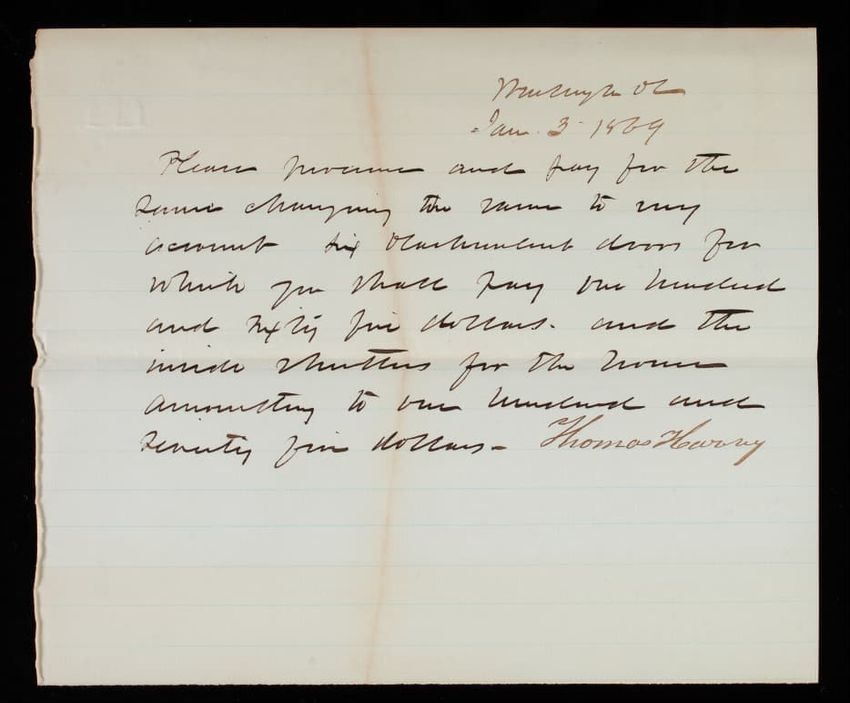 Washington DC
Jan. 3 1869
Please procure and pay for the
same charging the same to my
account six Black walnut doors for
which you shall pay one hundred
and sixty five dollars. and the
inside shutters for the house
amounting to one hundred and
seventy five dollars - Thomas Harvey